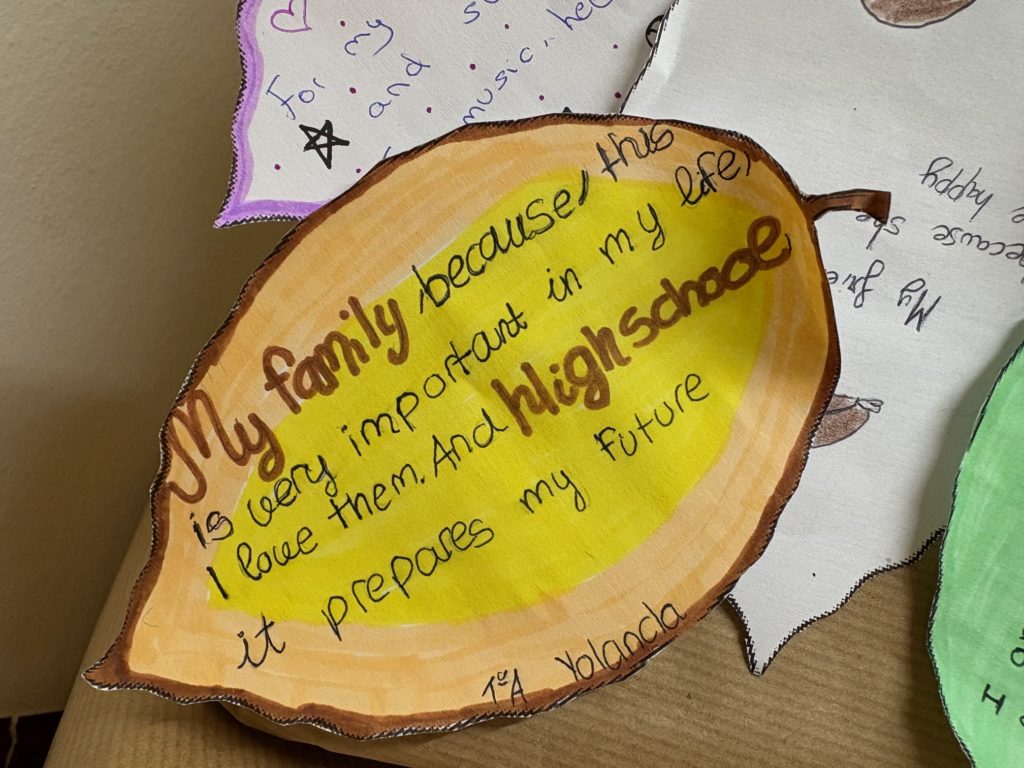 For my
and
music, hel
My family because, this
is very important in my life,
I love them. And Highschool,
it prepares my future
1ºA Yolanda
My frie
because she
happy
I